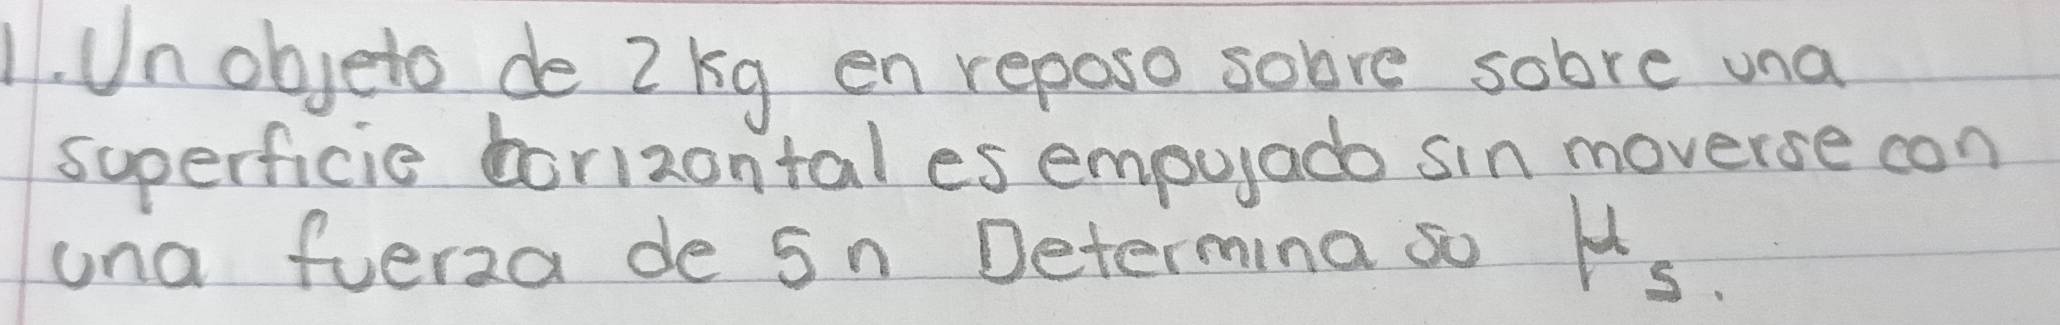 1. Un objeto de 2 kg en reposo sobre sobre una
superficie horizontal es empujado sin moverse con
una fuerza de 5 n Determina su μs.